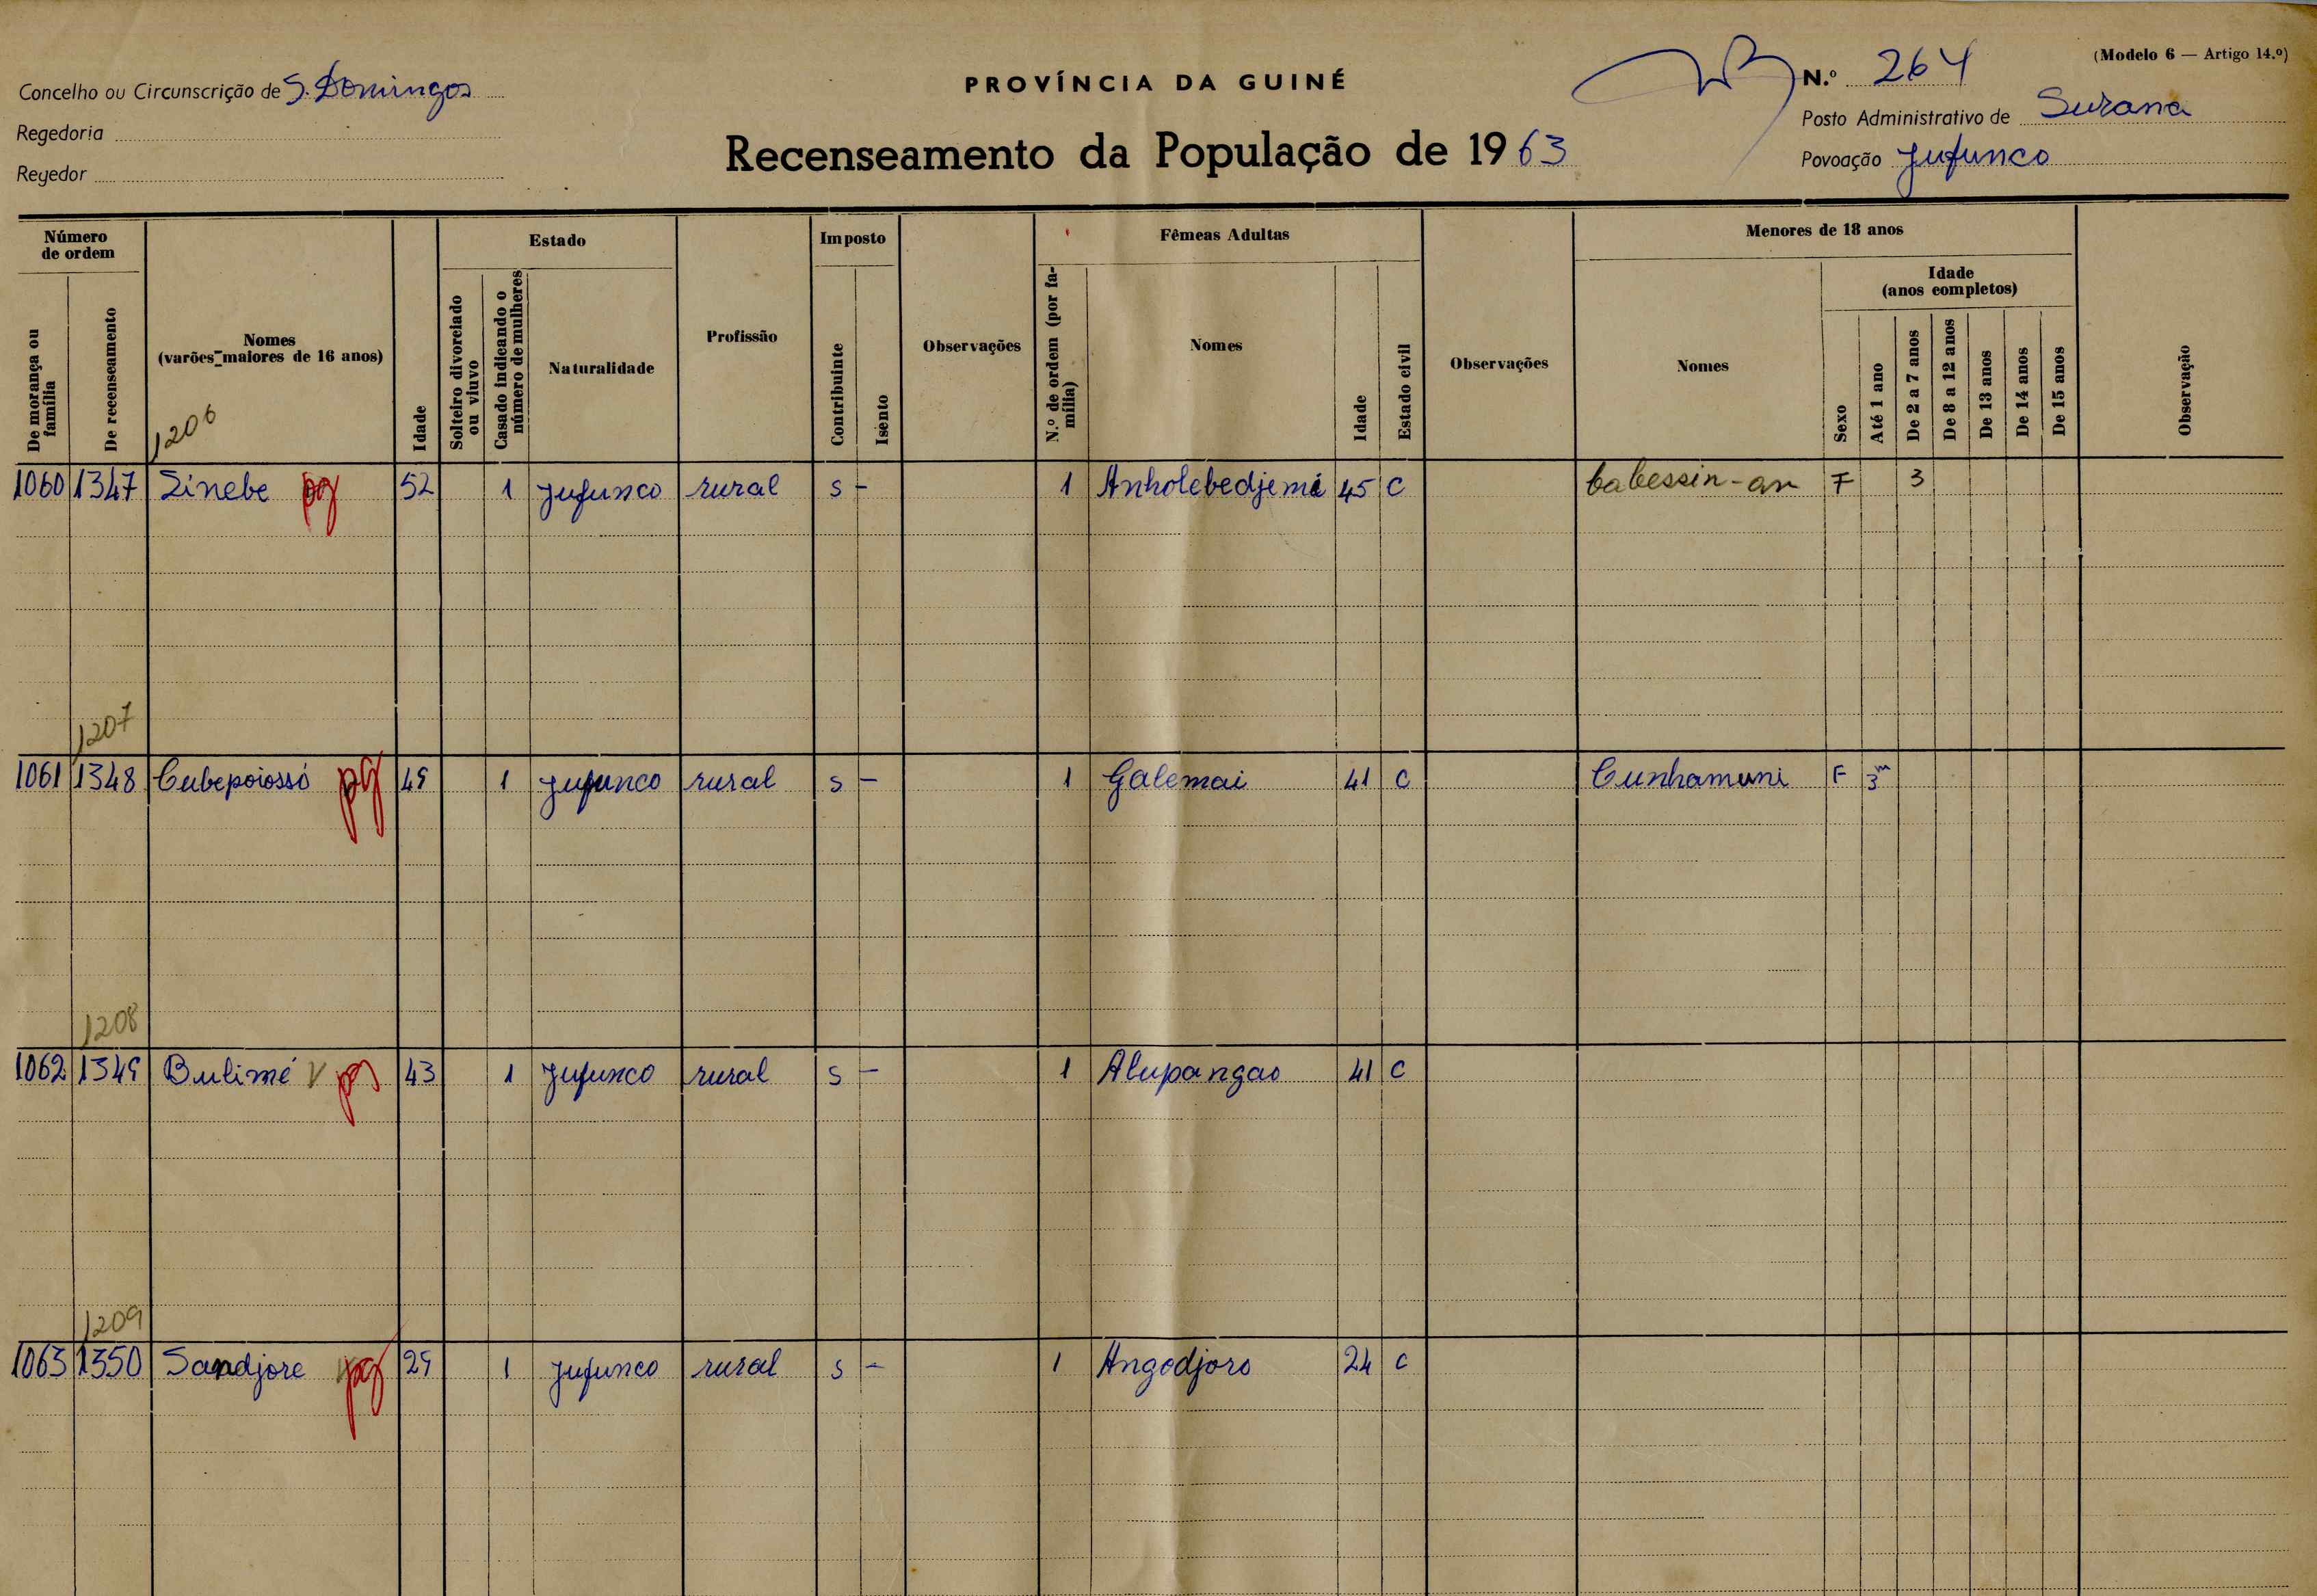 (Modelo 6 — Artigo 14.º)
Concelho ou Circunscrição de S. Domingos
PROVÍNCIA DA GUINÉ
N.º 264
Regedoria
Posto Administrativo de Suzana
Recenseamento da População de 1963
Regedor
Povoação Jufunco
Número de ordem
De morança ou família
De recenseamento
Nomes
(varões maiores de 16 anos)
1206
Idade
Estado
Solteiro divorciado ou viuvo
Casado indicando o número de mulheres
Naturalidade
Profissão
Imposto
Contribuinte
Isento
Observações
Fêmeas Adultas
N.º de ordem (por família)
Nomes
Idade
Estado civil
Observações
Menores de 18 anos
Nomes
Sexo
Idade
(anos completos)
Até 1 ano
De 2 a 7 anos
De 8 a 12 anos
De 13 anos
De 14 anos
De 15 anos
Observação
1060 1347 Sinebe pg 52 1 Jufunco rural s - 1 Anholebedjemé 45 C Cabessin-an F 3
1207
1061 1348 Cubepoiossó pg 49 1 Jufunco rural s - 1 Galemai 41 C Cunhamuni F 3m
1208
1062 1349 Bulimé V pg 43 1 Jufunco rural s - 1 Alupangao 41 C
1209
1063 1350 Sandjore pg 29 1 Jufunco rural s - 1 Angodjoro 24 C